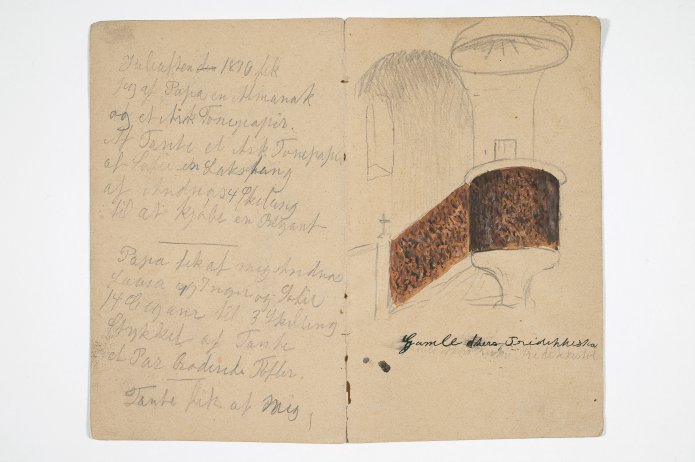 Juleaften den 1876 fik
jeg af Papa en Almanak
og et Ark Tonepapir.
Af Tante et Ark Tonepapir
af Sofie en Lakstang
af Andreas 4 Skilling
til at kjøbe en
Papa fik af mig Andreas
Laura og Inger og Sofie
14 Cigarer til 3 Skilling
Stykket af Tante
et Par Broderede Tøfler.
Tante fik af Mig,
Gamle Akers Præstekirke